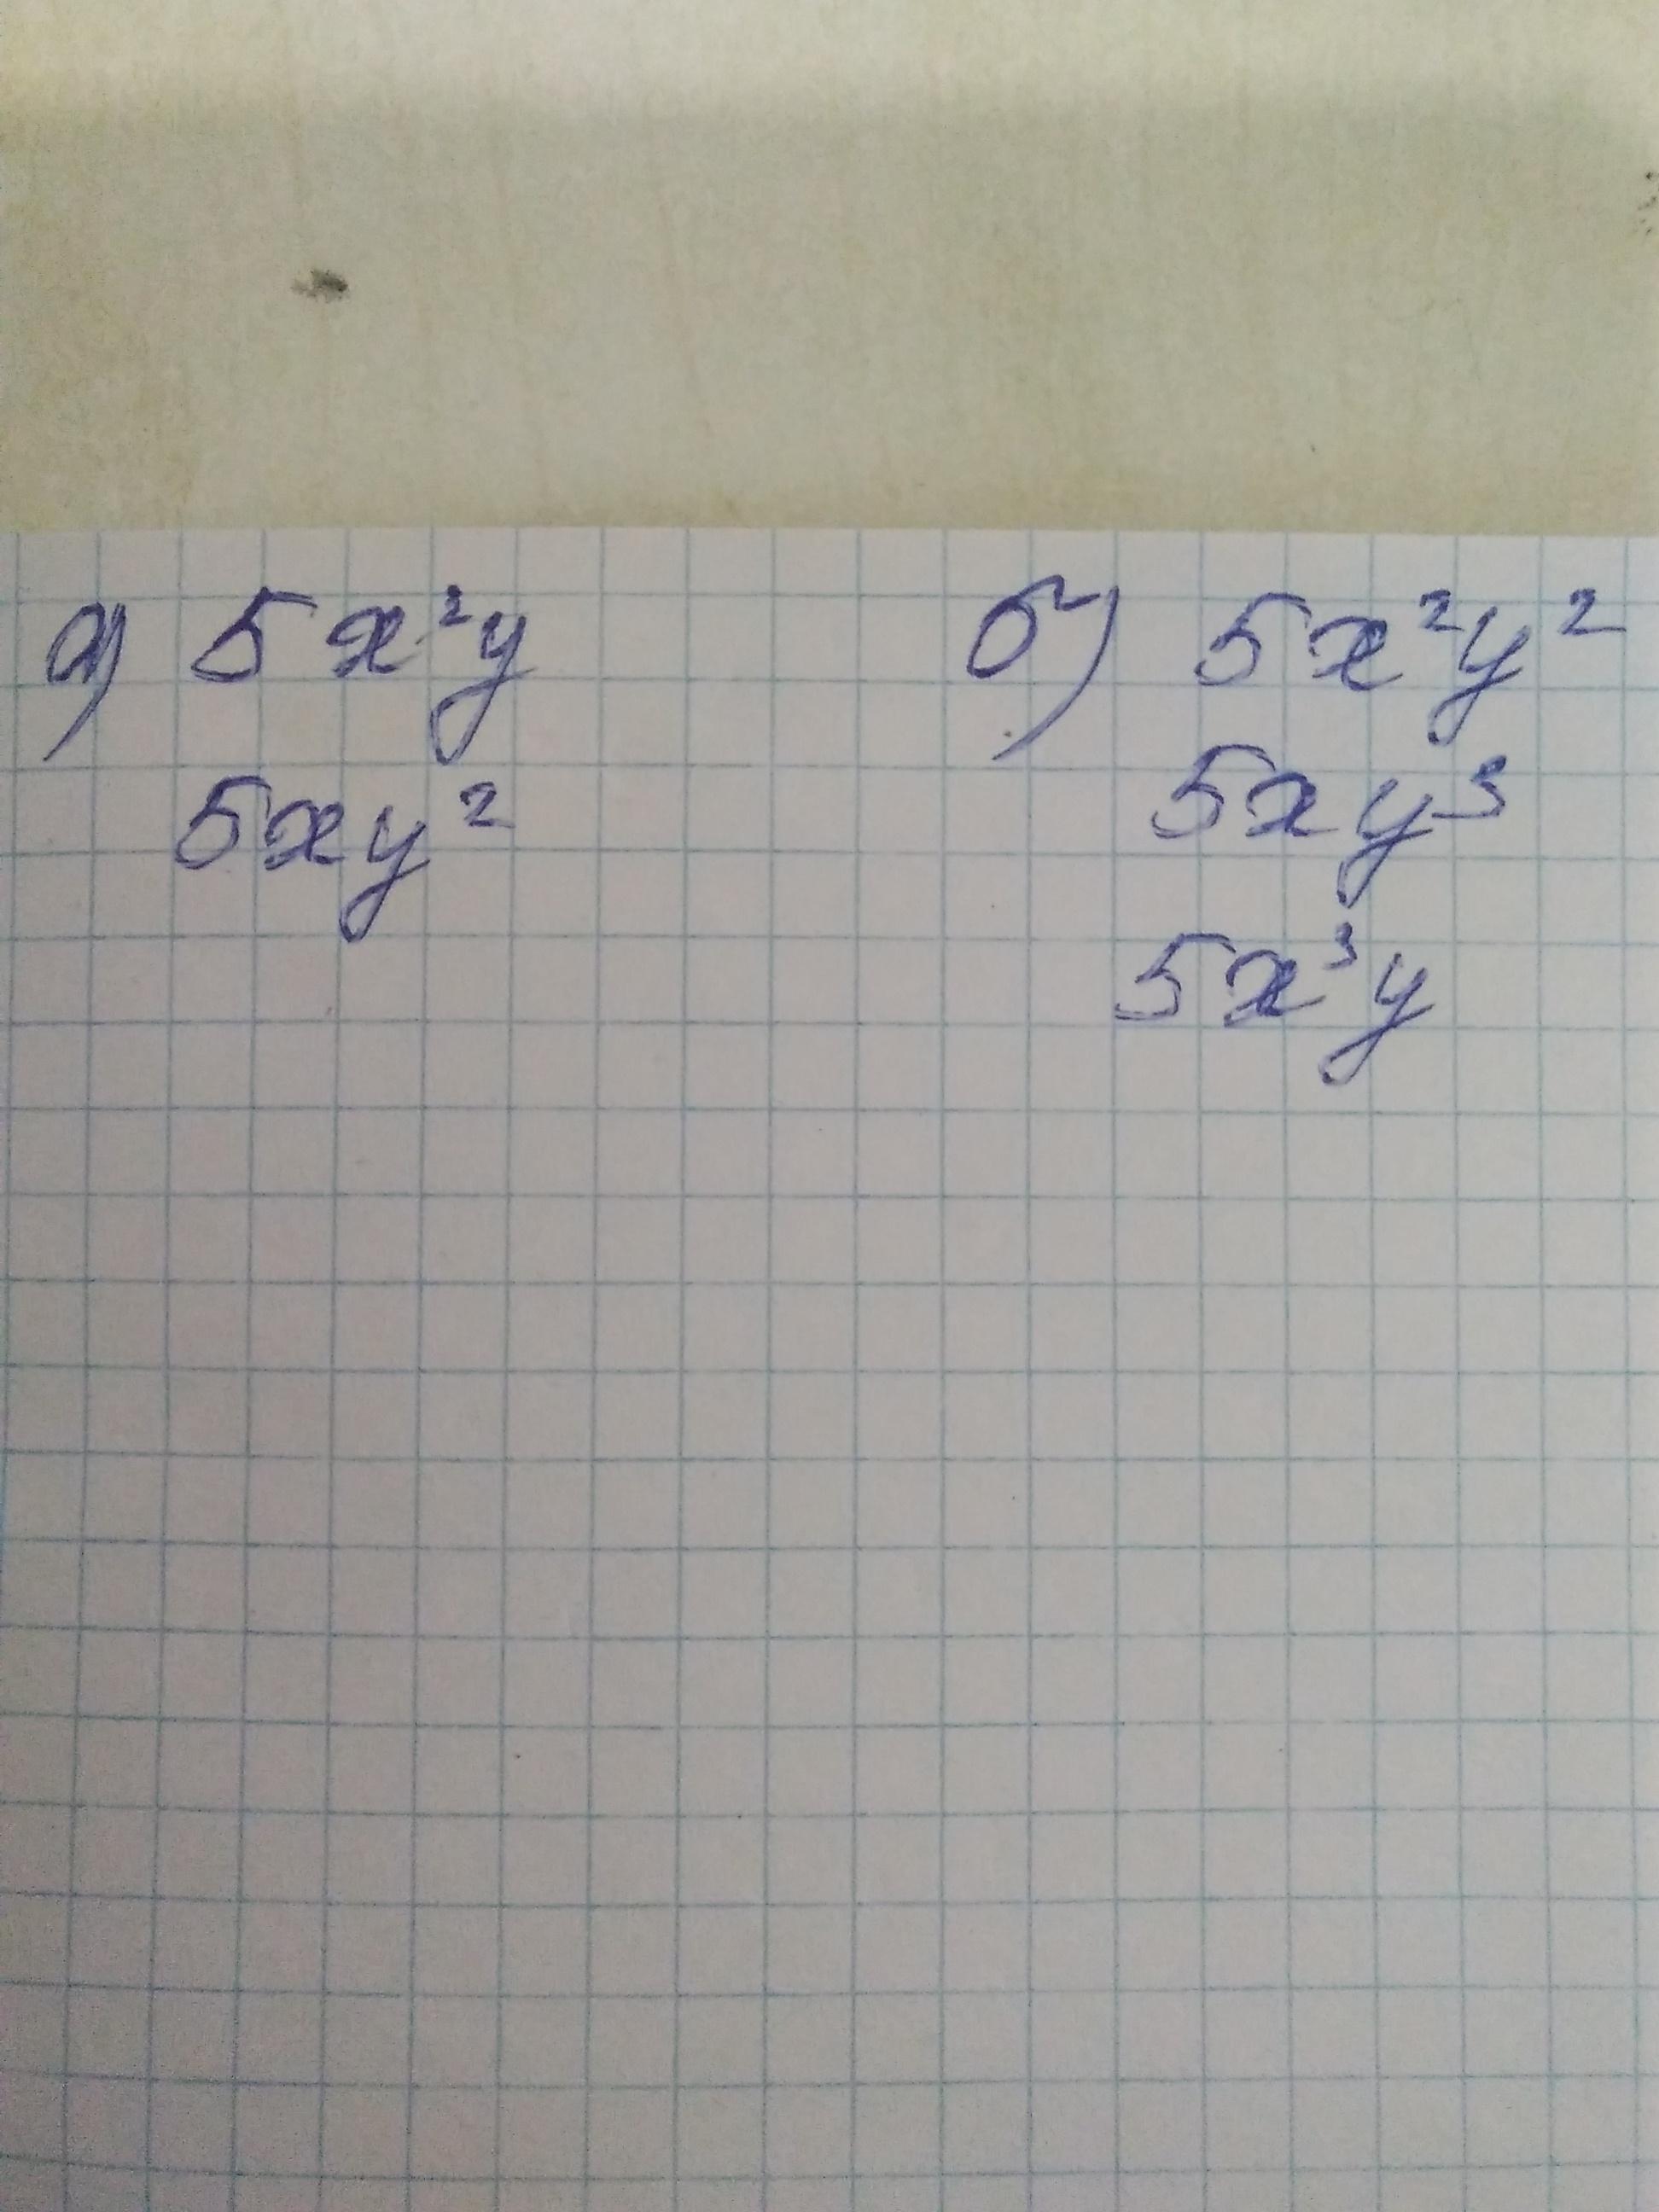 а) 5x²y
5xy²
б) 5x²y²
5xy³
5x³y